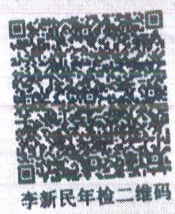 李新民年检二维码